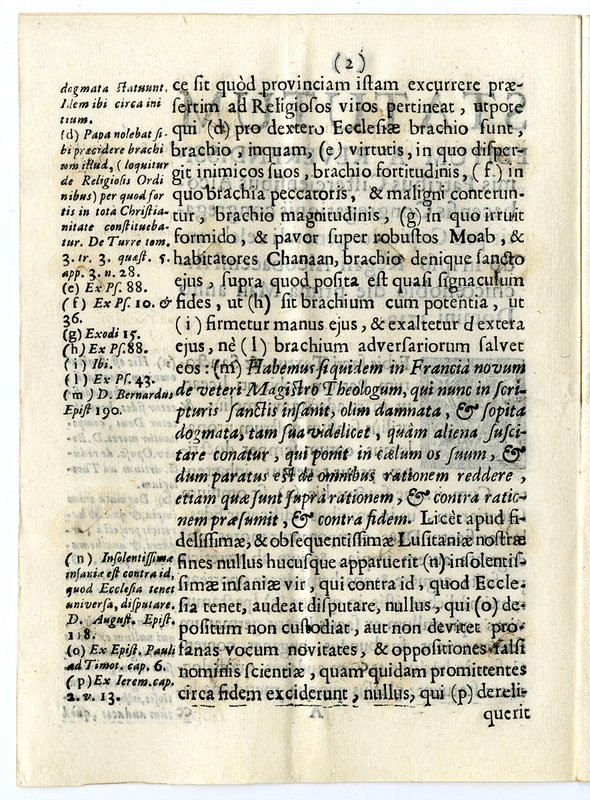 (2)
dogmata statuunt.
Idem ibi circa ini
tium.
(d) Papa nolebat si-
bi præcidere brachi
um istud, (loquitur
de Religiosis Ordi
nibus) per quod for
tis in totà Christia-
nitate constitueba-
tur. De Turre tom.
3. tr. 3. quæst. 5.
app. 3. n. 28.
(e) Ex Ps. 88.
(f) Ex Ps. 10. &
36.
(g) Exodi 15.
(h) Ex Ps. 88.
(i) Ibi.
(l) Ex Ps. 43.
(m) D. Bernardus
Epist 190.
(n) Insolentissimæ
insaniæ est contra id,
quod Ecclesia tenet
universa, disputare.
D. August. Epist.
118.
(o) Ex Epist. Pauli
ad Timot. cap. 6.
(p) Ex Ierem. cap.
2. v. 13.
ce sit quòd provinciam istam excurrere præ-
sertim ad Religiosos viros pertineat, utpote
qui (d) pro dextero Ecclesiæ brachio sunt,
brachio, inquam, (e) virtutis, in quo disper-
git inimicos suos, brachio fortitudinis, (f) in
quo brachia peccatoris, & maligni conterun-
tur, brachio magnitudinis, (g) in quo irruit
formido, & pavor super robustos Moab, &
habitatores Chanaan, brachio denique sancto
ejus, supra quod posita est quasi signaculum
fides, ut (h) sit brachium cum potentia, ut
(i) firmetur manus ejus, & exaltetur dextera
ejus, nè (l) brachium adversariorum salvet
eos: (m) Habemus siquidem in Francia novum
de veteri Magistro Theologum, qui nunc in scri-
pturis sanctis insanit, olim damnata, & sopita
dogmata, tam sua videlicet, quàm aliena susci-
tare conatur, qui ponit in cælum os suum, &
dum paratus est de omnibus rationem reddere,
etiam quæ sunt supra rationem, & contra ratio-
nem præsumit, & contra fidem. Licèt apud fi-
delissimæ, & obsequentissimæ Lusitaniæ nostræ
fines nullus hucusque apparuerit (n) insolentis-
simæ insaniæ vir, qui contra id, quod Eccle-
sia tenet, audeat disputare, nullus, qui (o) de-
positum non custodiat, aut non devitet pro-
fanas vocum novitates, & oppositiones falsi
nominis scientiæ, quam quidam promittentes
circa fidem exciderunt, nullus, qui (p) dereli-
querit